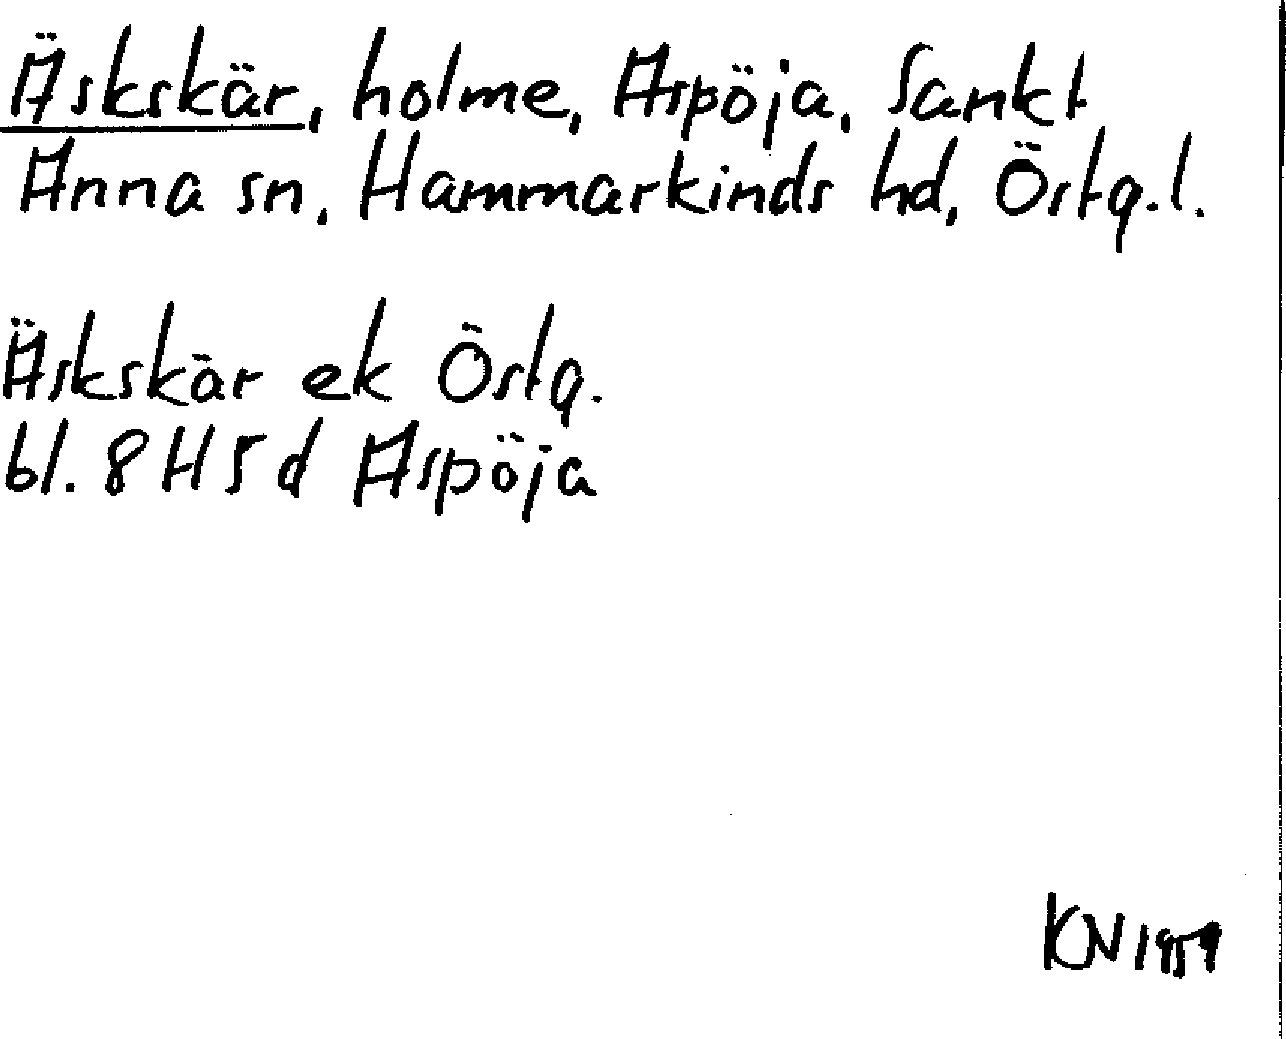 Äskskär, holme, Aspöja, Sankt
Anna sn, Hammarkinds hd, Östg.l.
Äskskär ek Östg.
bl. 8H5d Aspöja
KN 1959